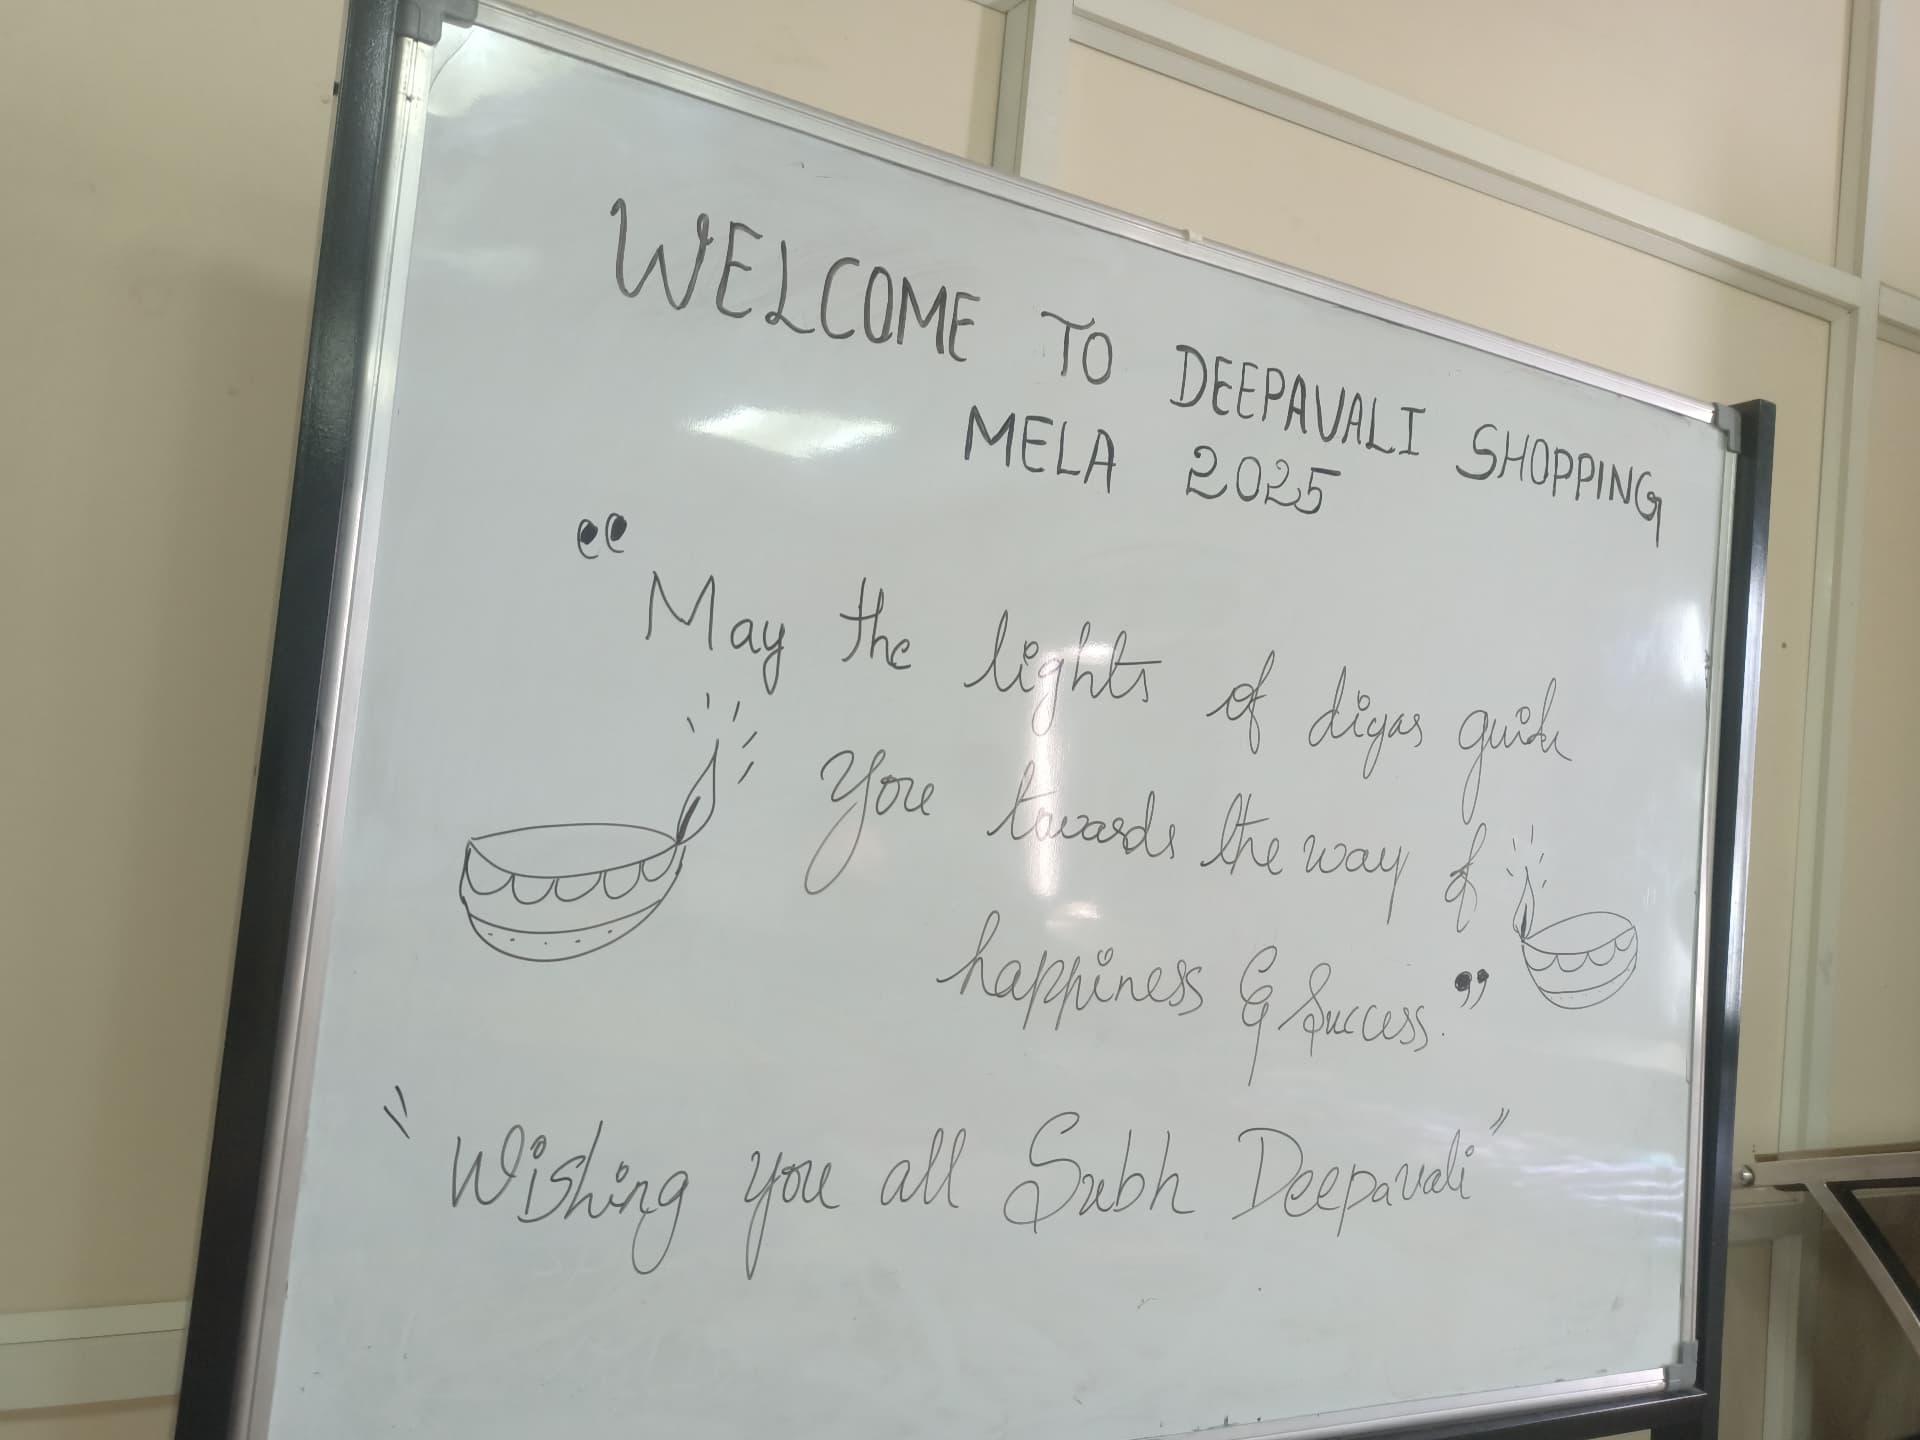 WELCOME TO DEEPAVALI SHOPPING
MELA 2025
“May the lights of diyas guide
you towards the way of
happiness & Success.”
"Wishing you all Subh Deepavali"